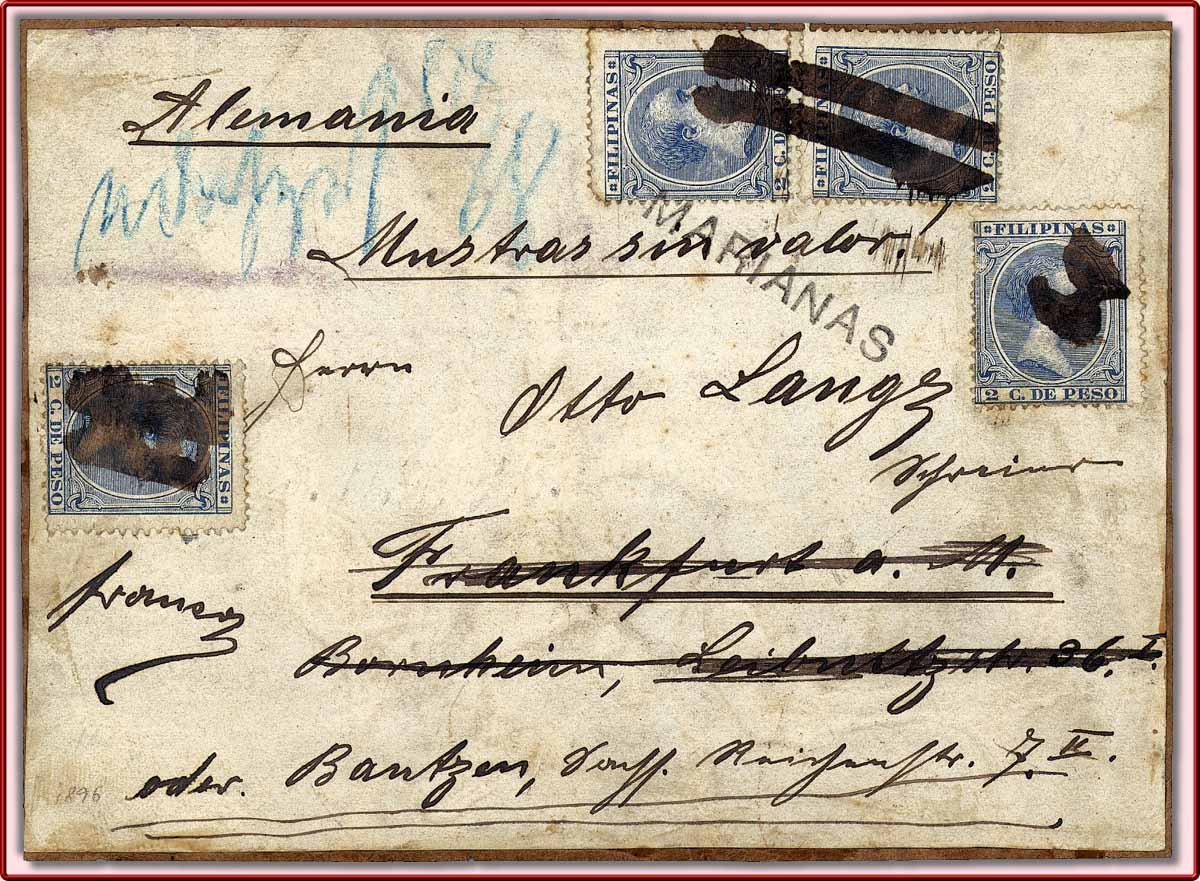 Alemania
FILIPINAS
2 C. DE PESO
FILIPINAS
2 C. DE PESO
Mustras sin valor.
MARIANAS
FILIPINAS
2 C. DE PESO
Herrn
Otto Lange
Schreiner
FILIPINAS
2 C. DE PESO
Frankfurt a. M.
franco
Bornheim, Leibnitzstr. 36. I.
oder. Bautzen, Sachs. Reichenstr. 7. II.
1896